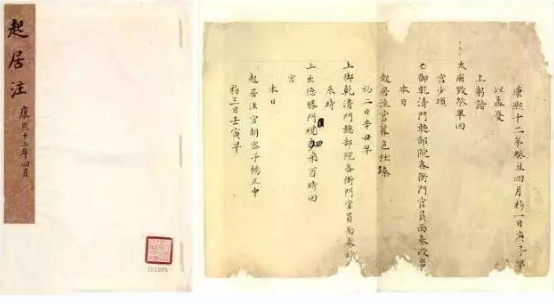 起居注 康熙十二年四月
康熙十二年癸丑四月初一日庚子早
以孟夏
上躬詣
太廟致祭畢回
宮少頃
上御乾清門聽部院各衙門官員面奏政事
本日
起居注官莫色杜臻
初二日辛丑早
上御乾清門聽部院各衙門官員面奏政
辰時
上出德勝門觀禾酉時回
宮
本日
起居注官胡密子楊正中
初三日壬寅早